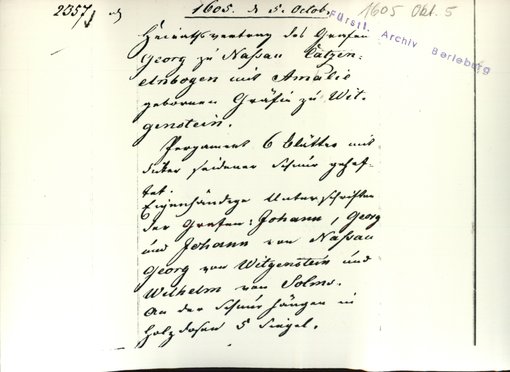 2357
1605. d 5. Octob.
1605 Okt. 5
Fürstl. Archiv Berleburg
Heirathsvertrag des Grafen
Georg zu Nassau Catzen-
elnbogen mit Amalie
gebornen Gräfin zu Wit-
genstein.
Pergament 6 Blätter mit
seidener Schnur gehef-
tet.
Eigenhändige Unterschriften
der Grafen: Johann, Georg
und Johann von Nassau
Georg von Witgenstein und
Wilhelm von Solms.
An der Schnur hängen in
Holzdosen 5 Siegel.